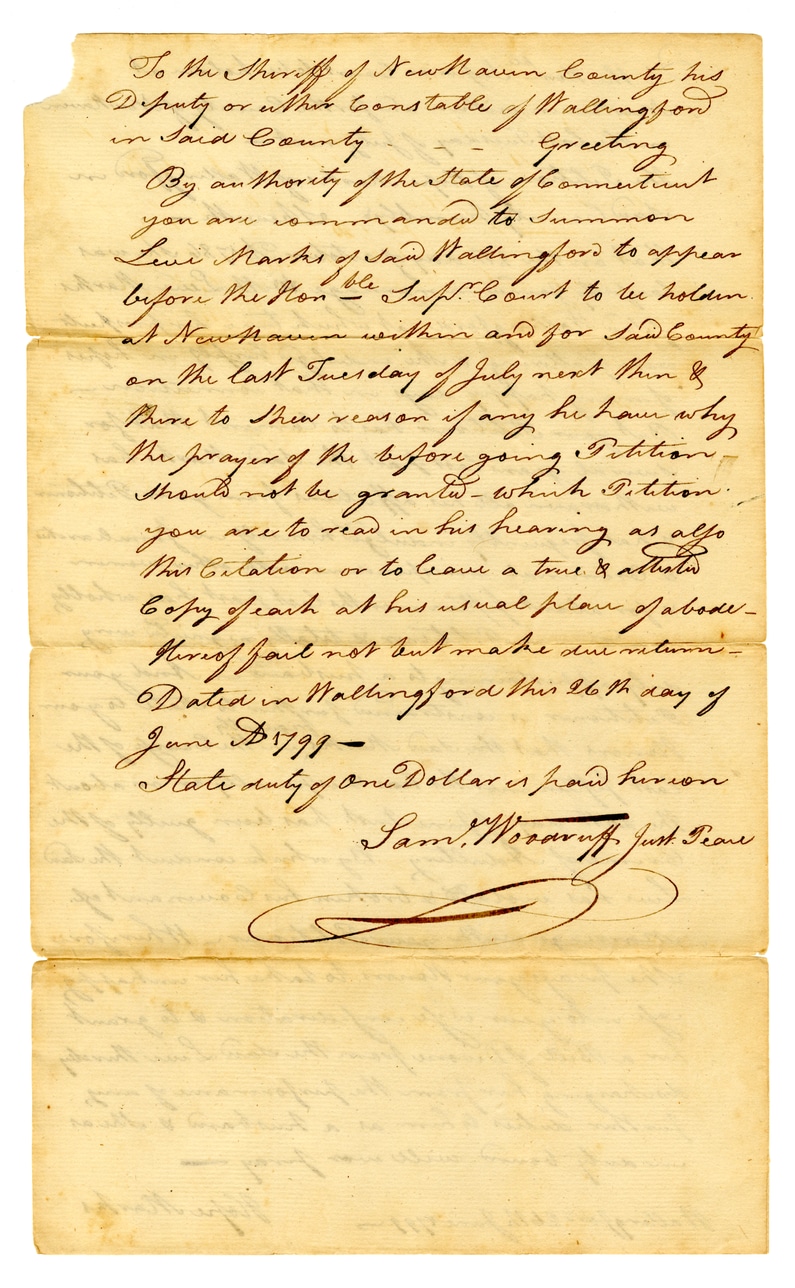 To the Sheriff of New Haven County his
Deputy or either Constable of Wallingford
in Said County - - - Greeting
By authority of the State of Connecticut
you are commanded to Summon
Levi Marks of said Wallingford to appear
before the Honble Supr. Court to be holden
at New Haven within and for said County
on the last Tuesday of July next then &
there to shew reason if any he have why
the prayer of the before going Petition -
should not be granted - which Petition
you are to read in his hearing as also
this Citation or to leave a true & attested
Copy of each at his usual place of abode -
Hereof fail not but make due return -
Dated in Wallingford this 26th day of
June AD 1799 -
State duty of One Dollar is paid hereon
Saml. Woodruff Just. Peace